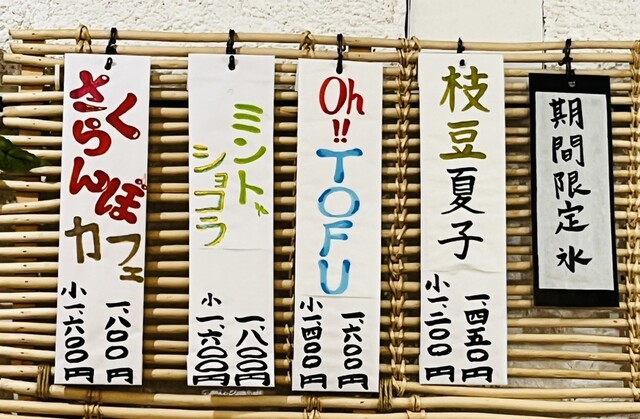 期間限定氷
枝豆夏子
一、四五〇円
小一、二〇〇円
Oh!!
TOFU
一、六〇〇円
小一、四〇〇円
ミント
ショコラ
一、八〇〇円
小一、六〇〇円
さくらんぽ
カフェ
一、八〇〇円
小一、六〇〇円